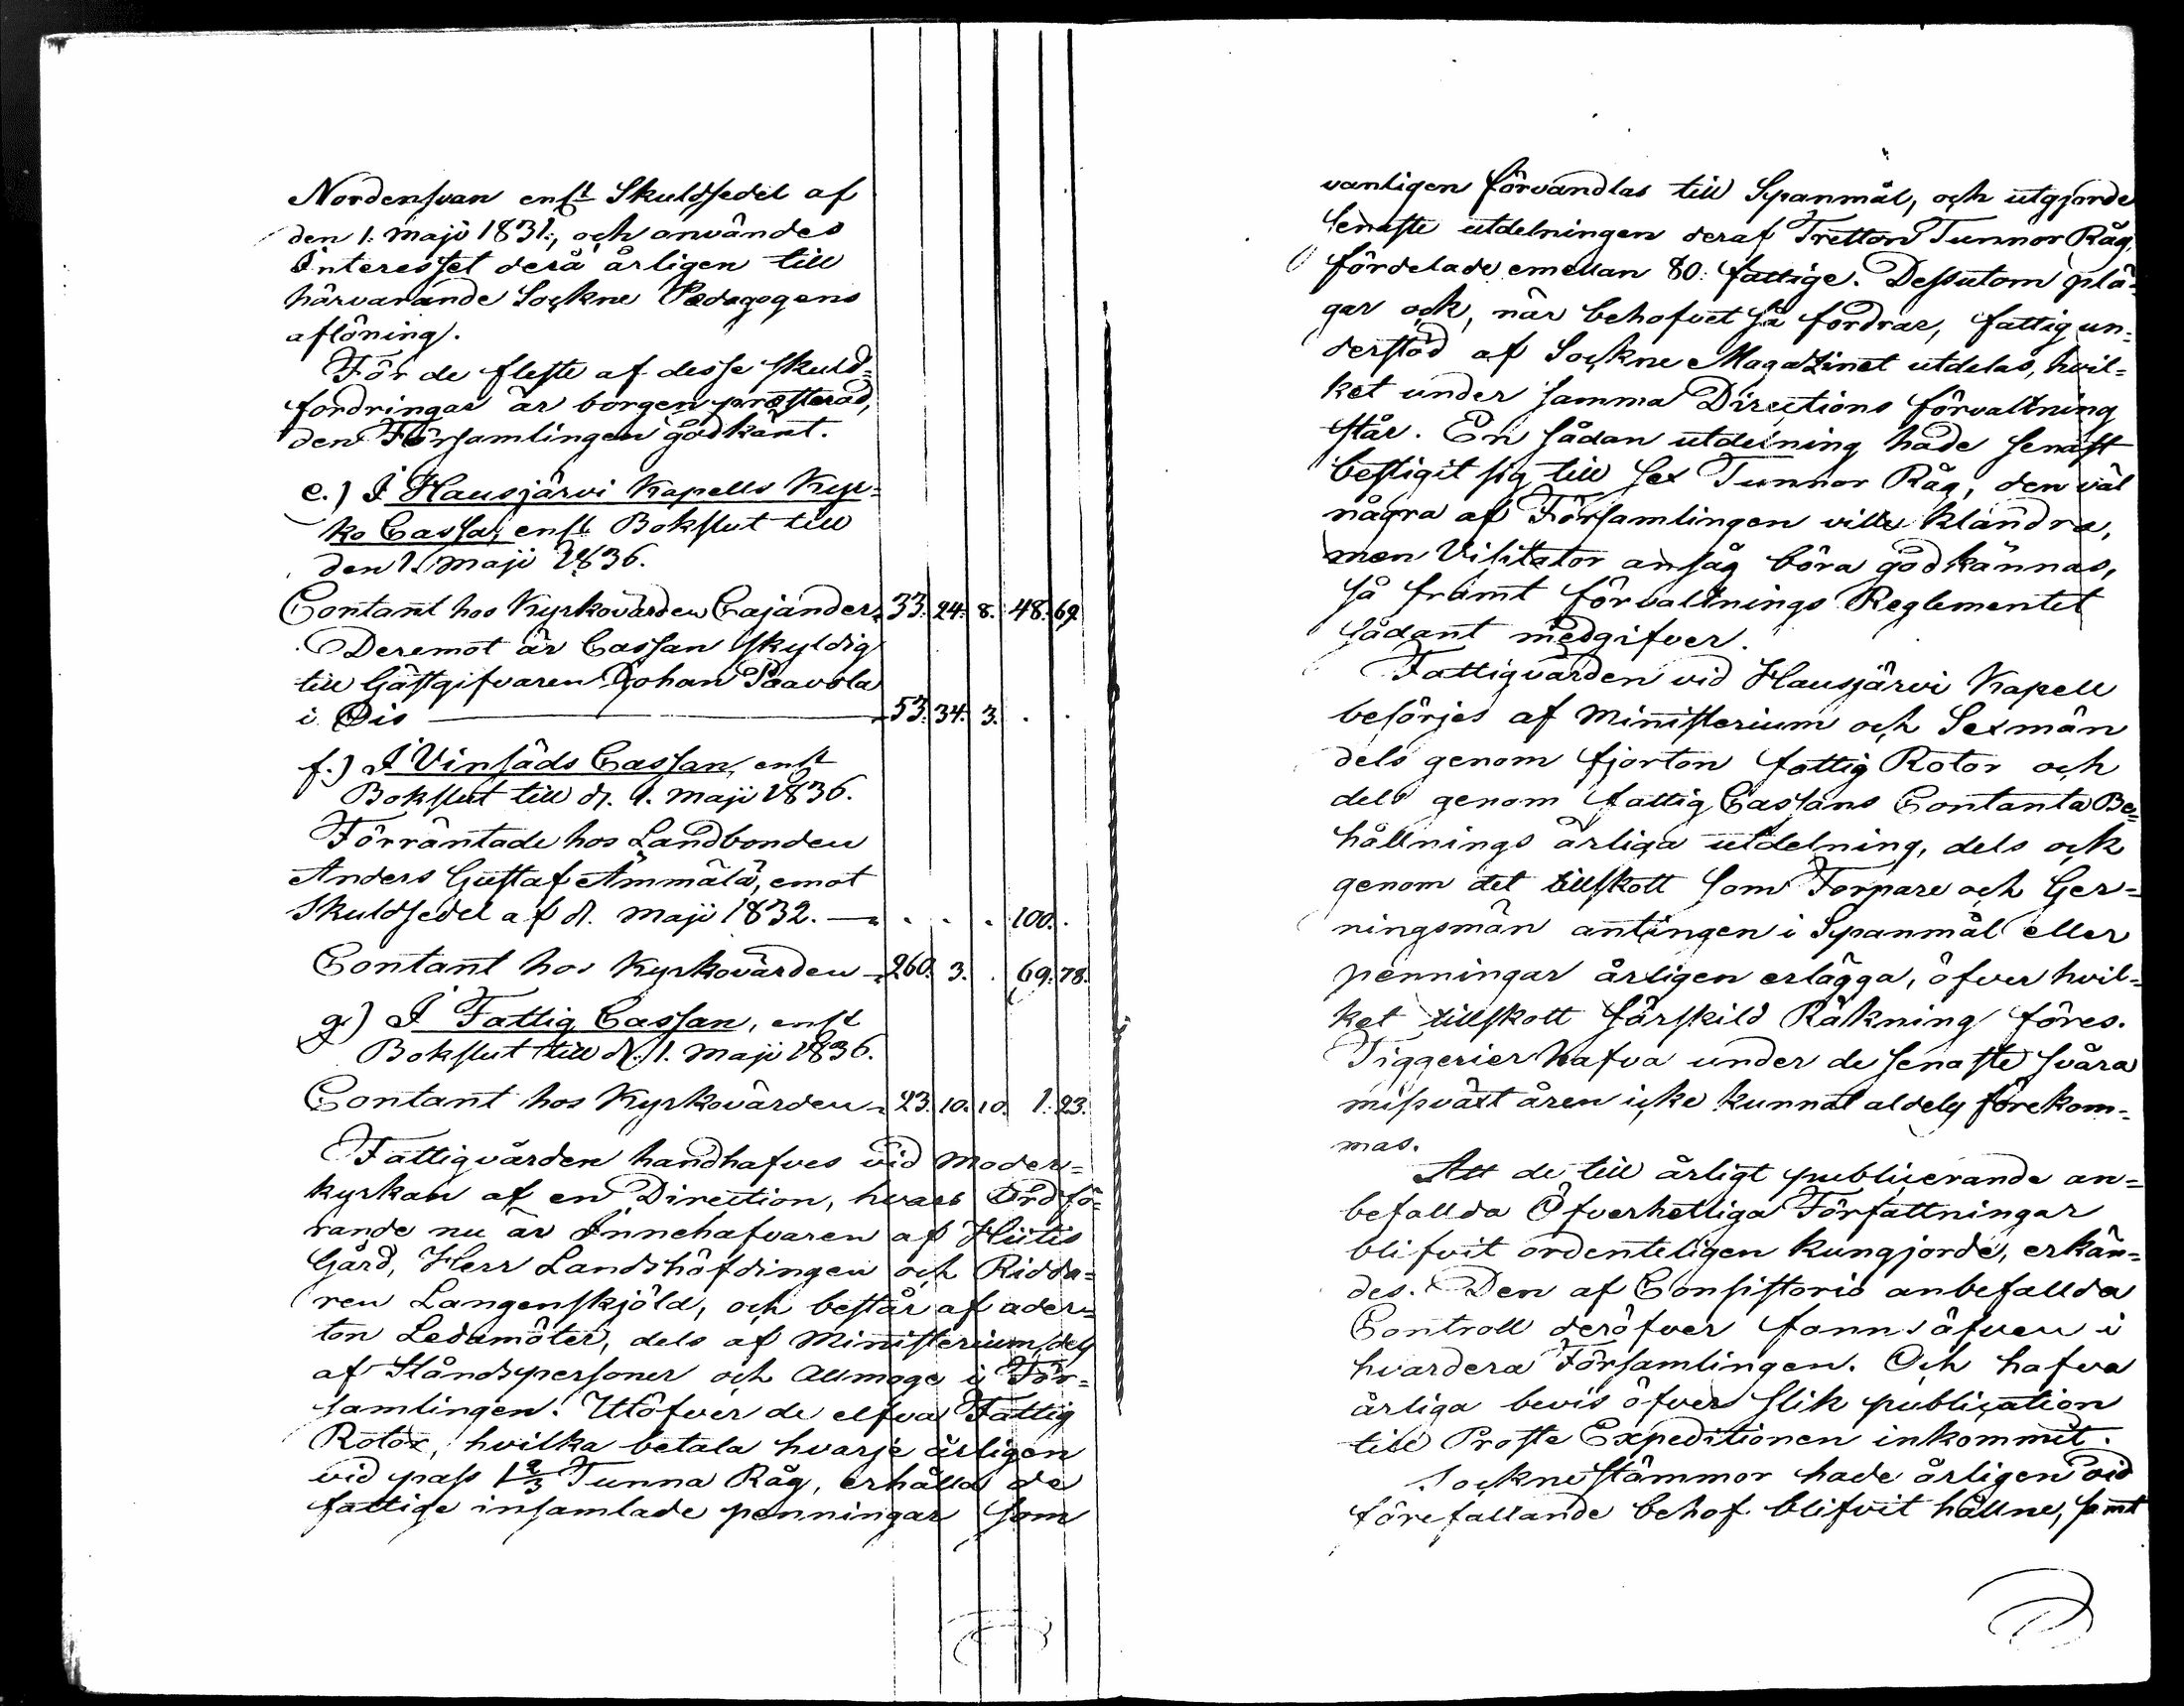 Nordensvan enl:t Skuldsedel af
den 1. Maji 1831, och användes
Interesset derå årligen till
härvarande Sockne Pædagogens
aflöning.
För de fleste af desse skuld=
fordringar är borgen præsterad,
den Församlingen godkänt.
e.) I Hausjärvi Kapells Kyr=
ko Cassa, enl:t Bokslut till
den 1. Maji 1836.
Contant hos Kyrkovärden Cajander 33. 24. 8. 48. 69.
Deremot är Cassan skyldig
till Gästgifvaren Johan Paavola
i Ois — 53. 34. 3. . .
f.) I Vinsäds Cassan, enl:t
Bokslut till d. 1. Maji 1836.
Förräntade hos Landbonden
Anders Gustaf Ämmälä, emot
Skuldsedel af d. 1. Maji 1832. — . . . 100. .
Contant hos Kyrkovärden 260. 3. . 69. 78.
g.) I Fattig Cassan, enl:t
Bokslut till d. 1. Maji 1836.
Contant hos Kyrkovärden 23. 10. 10. 1. 23.
Fattigvården handhafves vid Moder=
kyrkan af en Direction, hvars Ordfö=
rande nu är Innehafvaren af Hiitis
Gård, Herr Landshöfdingen och Ridda=
ren Langenskjöld, och består af ader=
ton Ledamöter, dels af Ministerium, dels
af Ståndspersoner och Allmoge i För=
samlingen. Utöfver de elfva Fattig
Rotor, hvilka betala hvarje årligen
vid pass 1 2/3 Tunna Råg, erhålla de
fattige insamlade penningar som
vanligen förvandlas till Spanmål, och utgjorde
senaste utdelningen deraf Tretton Tunnor Råg,
fördelade emellan 80. fattige. Dessutom plä=
gar ock, när behofvet så fordrar, fattig un=
derstöd af Sockne Magazinet utdelas, hvil=
ket under samma Directions förvaltning
står. En sådan utdelning hade senast
bestigit sig till sex Tunnor Råg, den väl
några af Församlingen ville klandra,
men Visitator ansåg böra godkännas,
så framt förvaltnings Reglementet
sådant medgifver.
Fattigvården vid Hausjärvi Kapell
besörjes af Ministerium och Sexmän
dels genom fjorton fattig Rotor och
dels genom fattig Cassans Contanta Be=
hållnings årliga utdelning, dels ock
genom det tillskott som Torpare och Ger=
ningsmän antingen i Spanmål eller
penningar årligen erlägga, öfver hvil=
ket tillskott särskild Räkning föres.
Tiggerier hafva under de senaste svåra
missväxt åren icke kunnat aldeles förekom=
mas.
Att de till årligt publicerande an=
befallda Öfverhetliga Författningar
blifvit ordenteligen kungjorde, erkän=
des. Den af Consistorio anbefallda
Controll deröfver fanns äfven i
hvardera Församlingen. Och hafva
årliga bevis öfver slik publication
till Proste Expeditionen inkommit.
Sockne stämmor hade årligen vid
förefallande behof blifvit hållne, samt